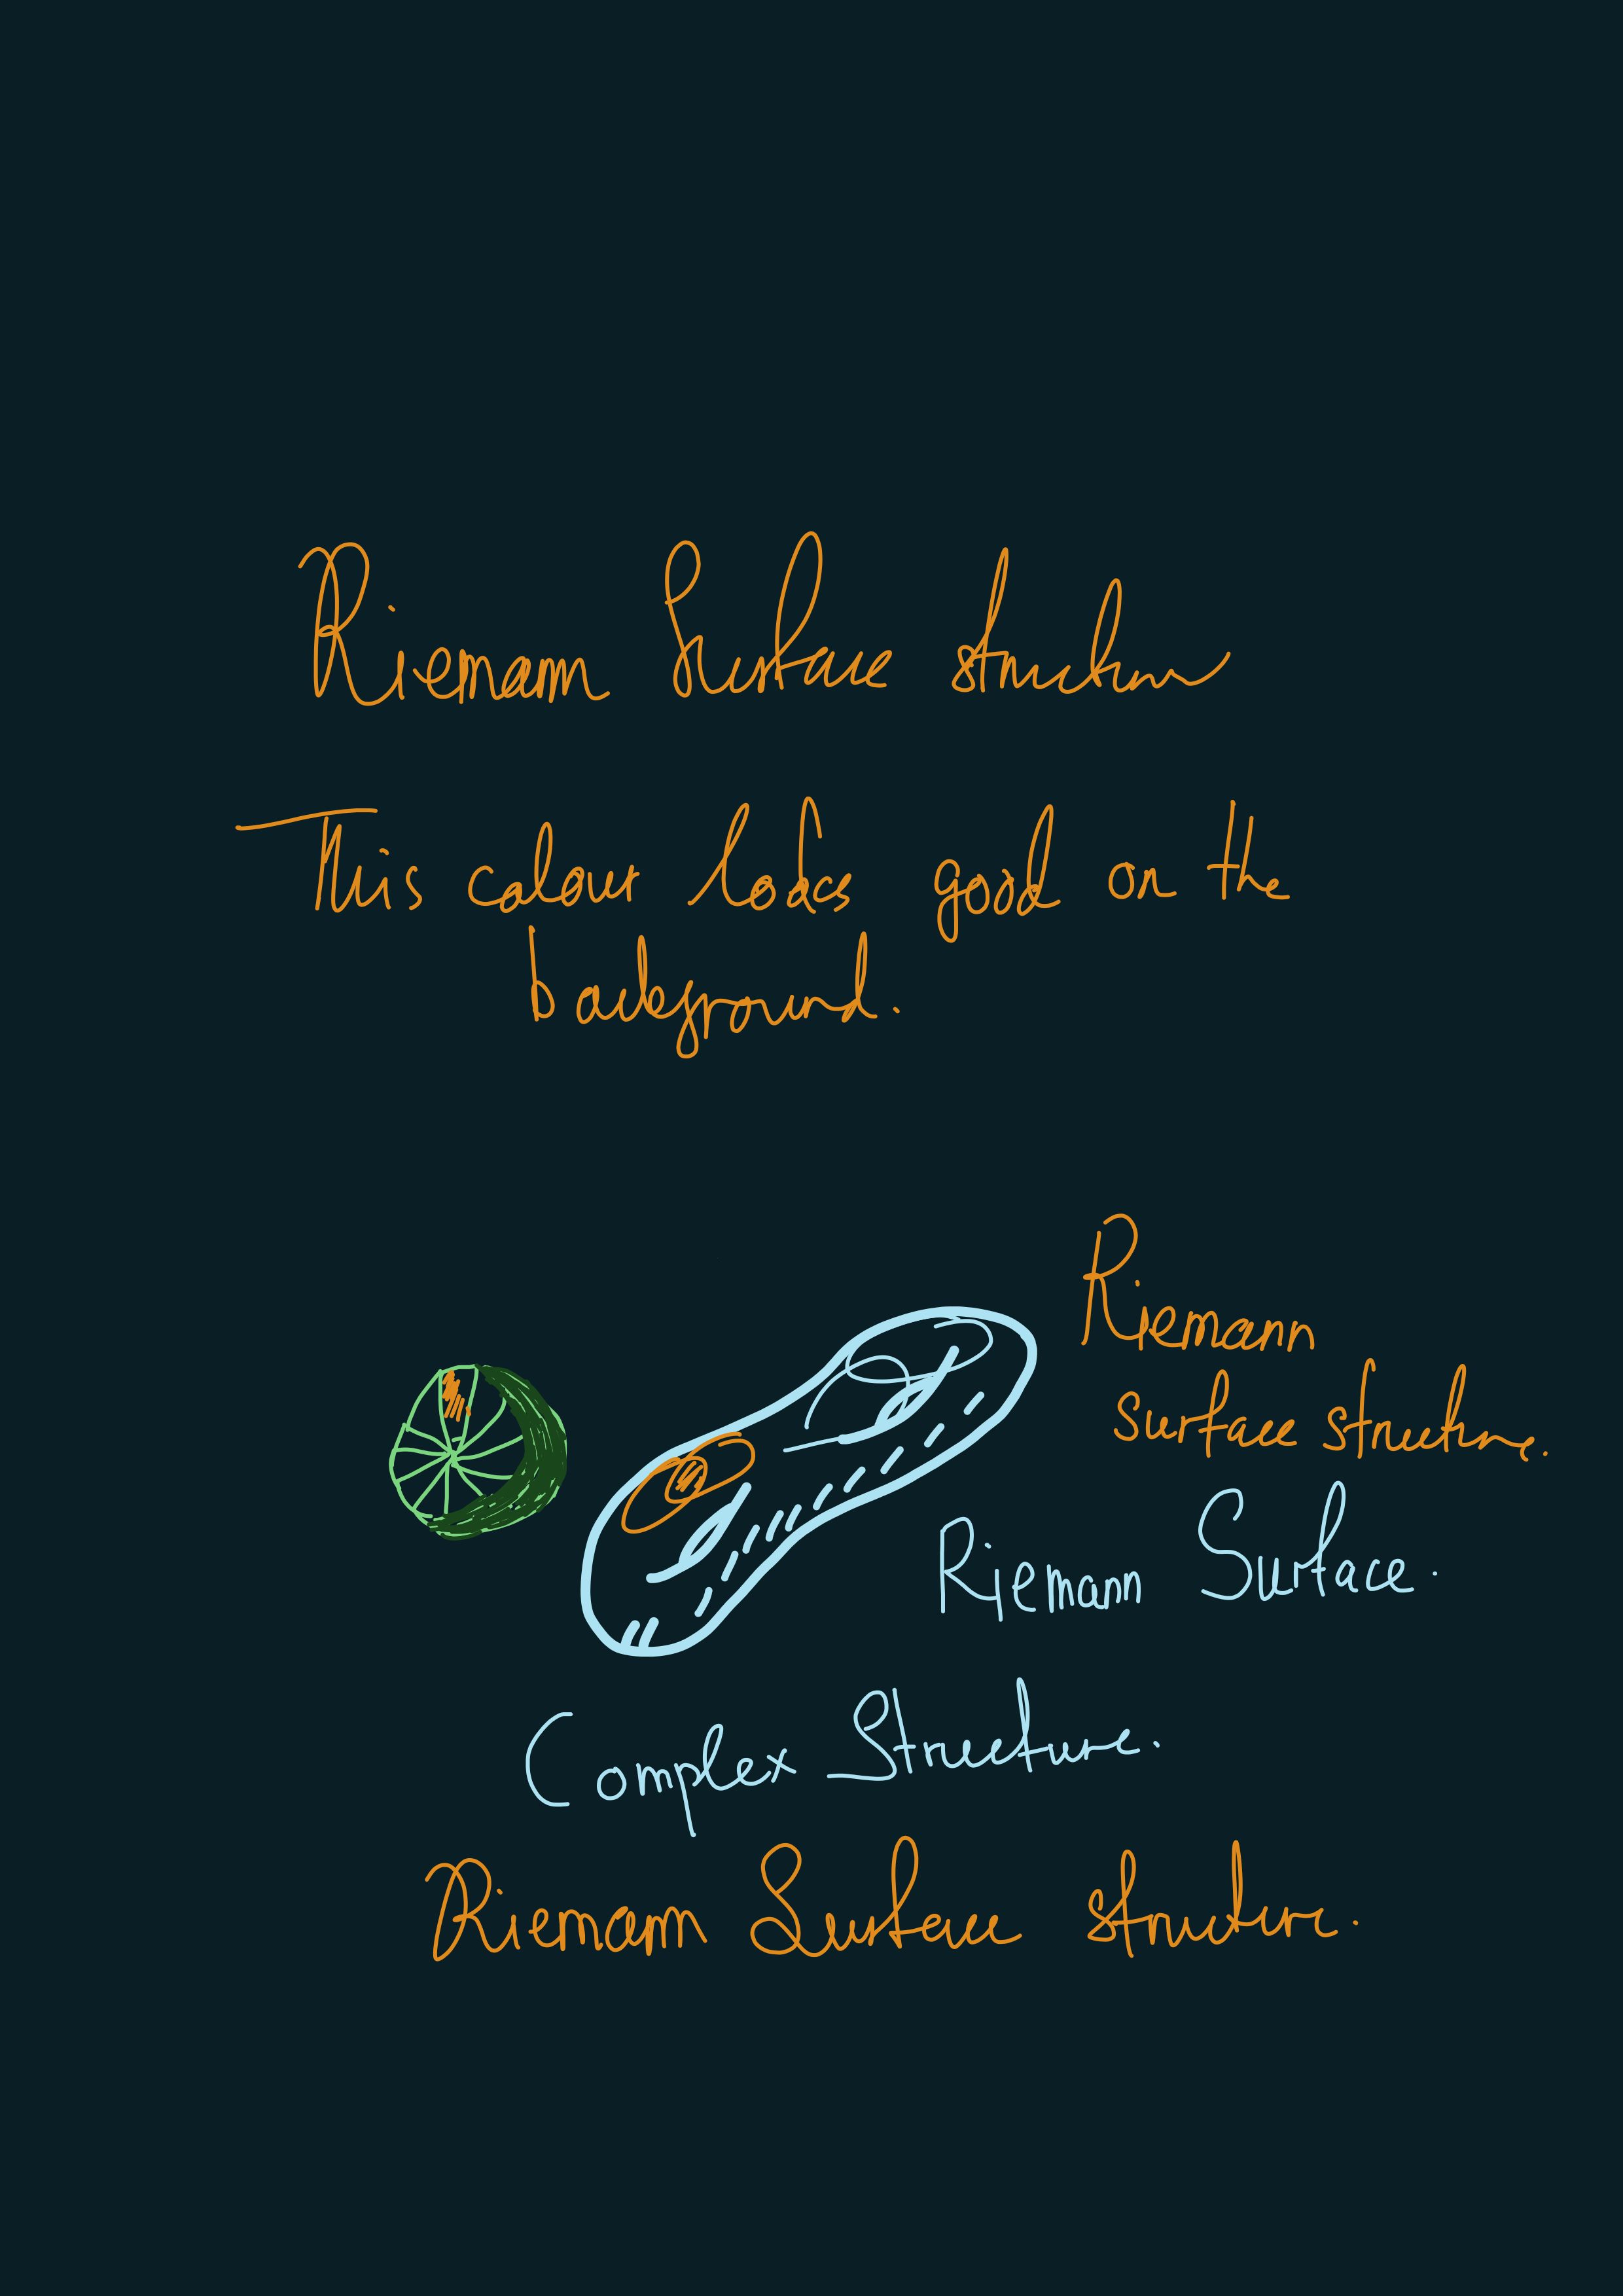 Riemann Surface structure
This colour looks good on the
background.
Riemann
surface structure.
Riemann Surface.
Complex Structure.
Riemann Surface structure.